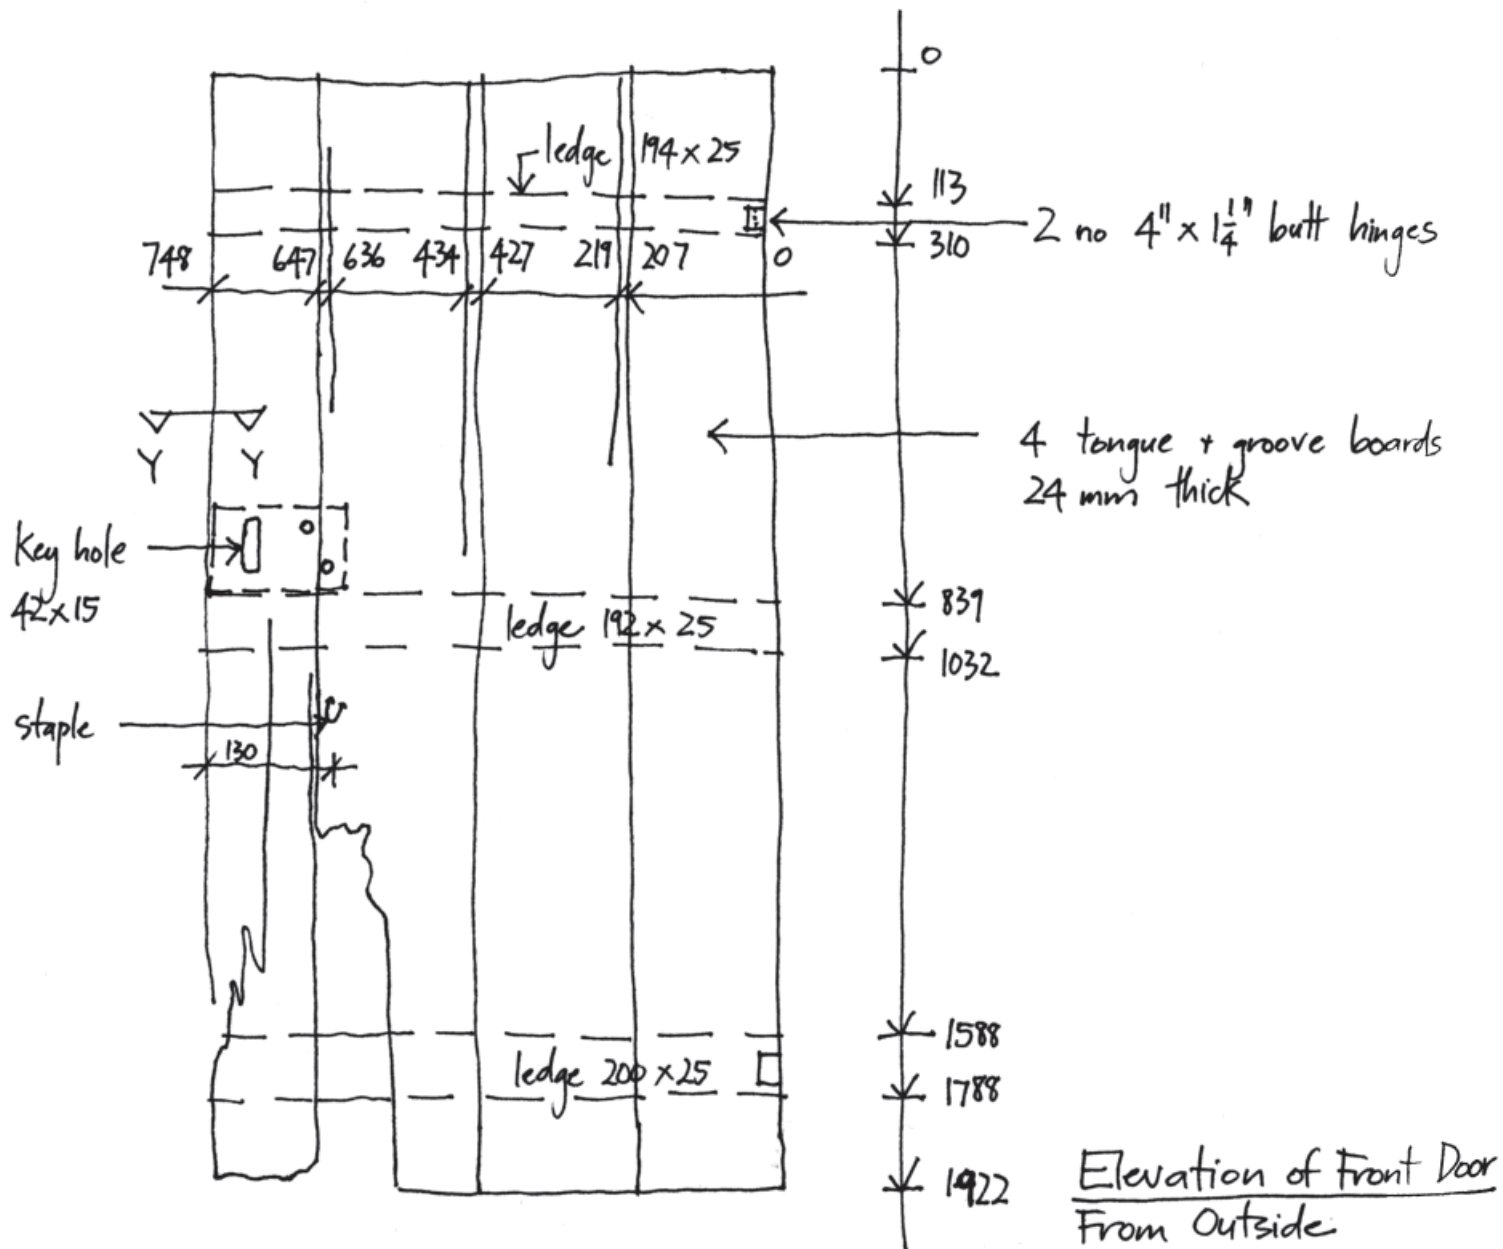 0
ledge 194 x 25
113
2 no 4" x 1 1/4" butt hinges
310
748 647 636 434 427 219 207 0
4 tongue + groove boards
24 mm thick
Y Y
Key hole
42 x 15
839
ledge 192 x 25
1032
staple
130
1588
ledge 200 x 25
1788
1922
Elevation of Front Door
From Outside